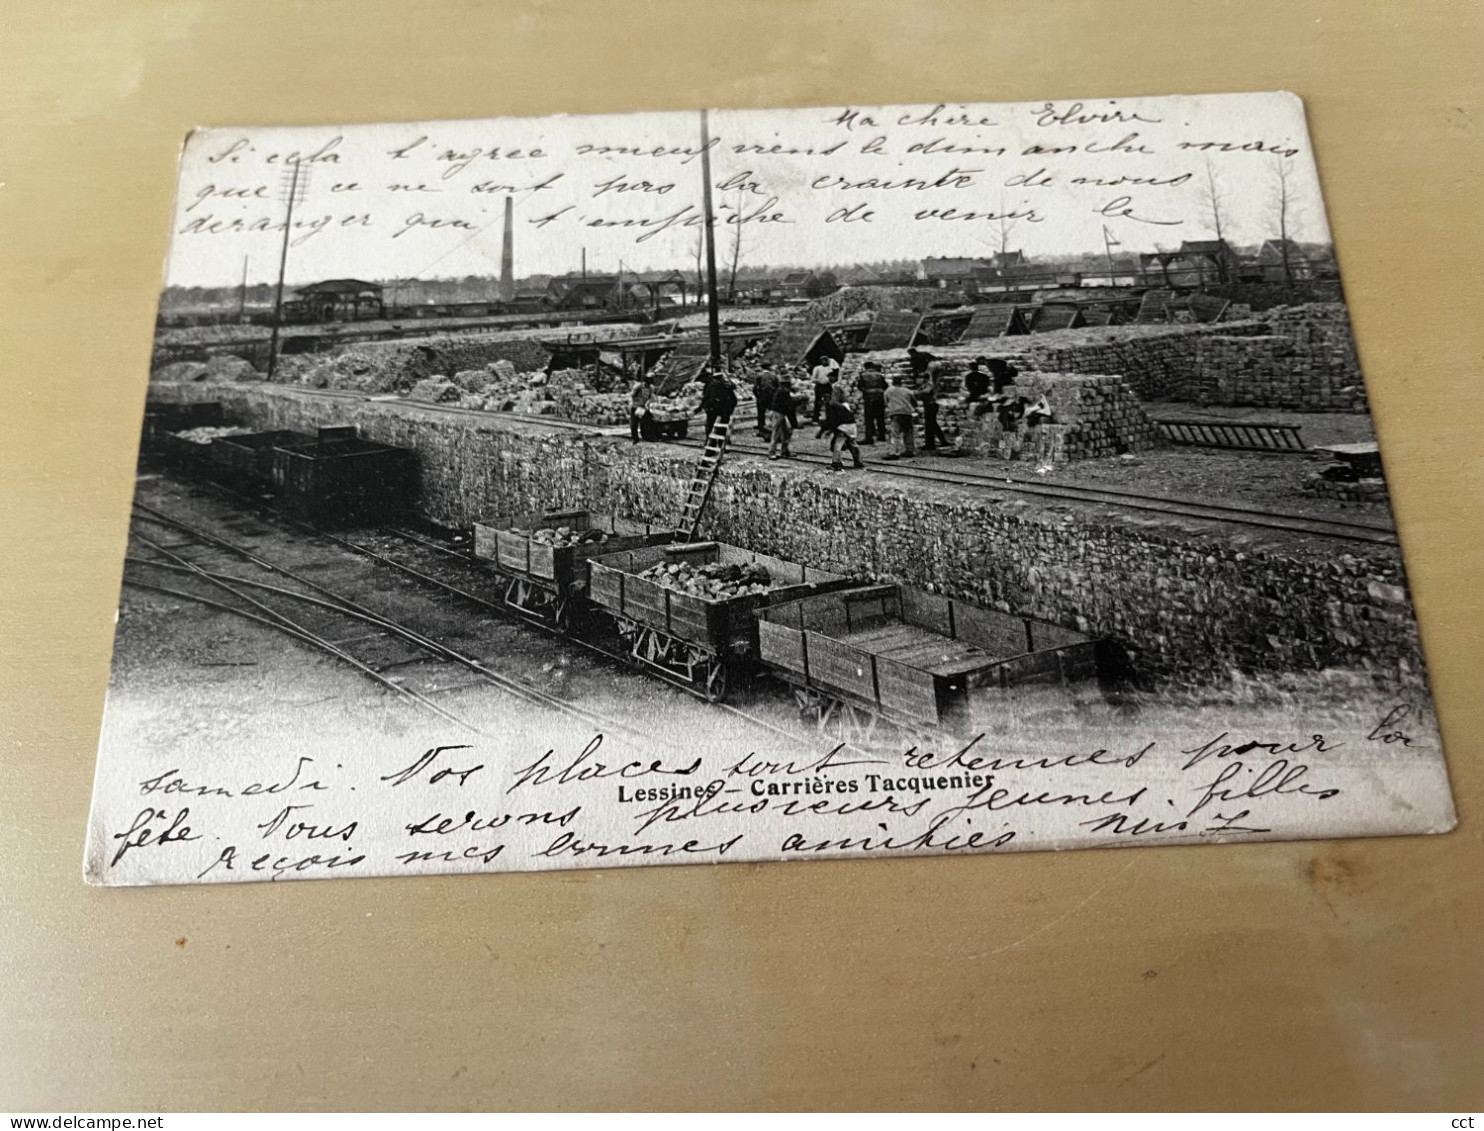 Ma chère Elvire.
Si cela t'agrée mieux viens le dimanche mais
que ce ne soit pas la crainte de nous
déranger qui t'empêche de venir le
samedi. Nos places sont retenues pour la
Lessines – Carrières Tacquenier
fête. Nous serons plusieurs jeunes filles
Reçois mes bonnes amitiés
www.delcampe.net
cct